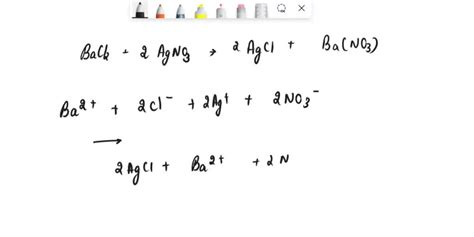 BaCl₂ + 2 AgNO₃ → 2 AgCl + Ba(NO₃)
Ba²⁺ + 2Cl⁻ + 2Ag⁺ + 2NO₃⁻
→
2AgCl + Ba²⁺ + 2N